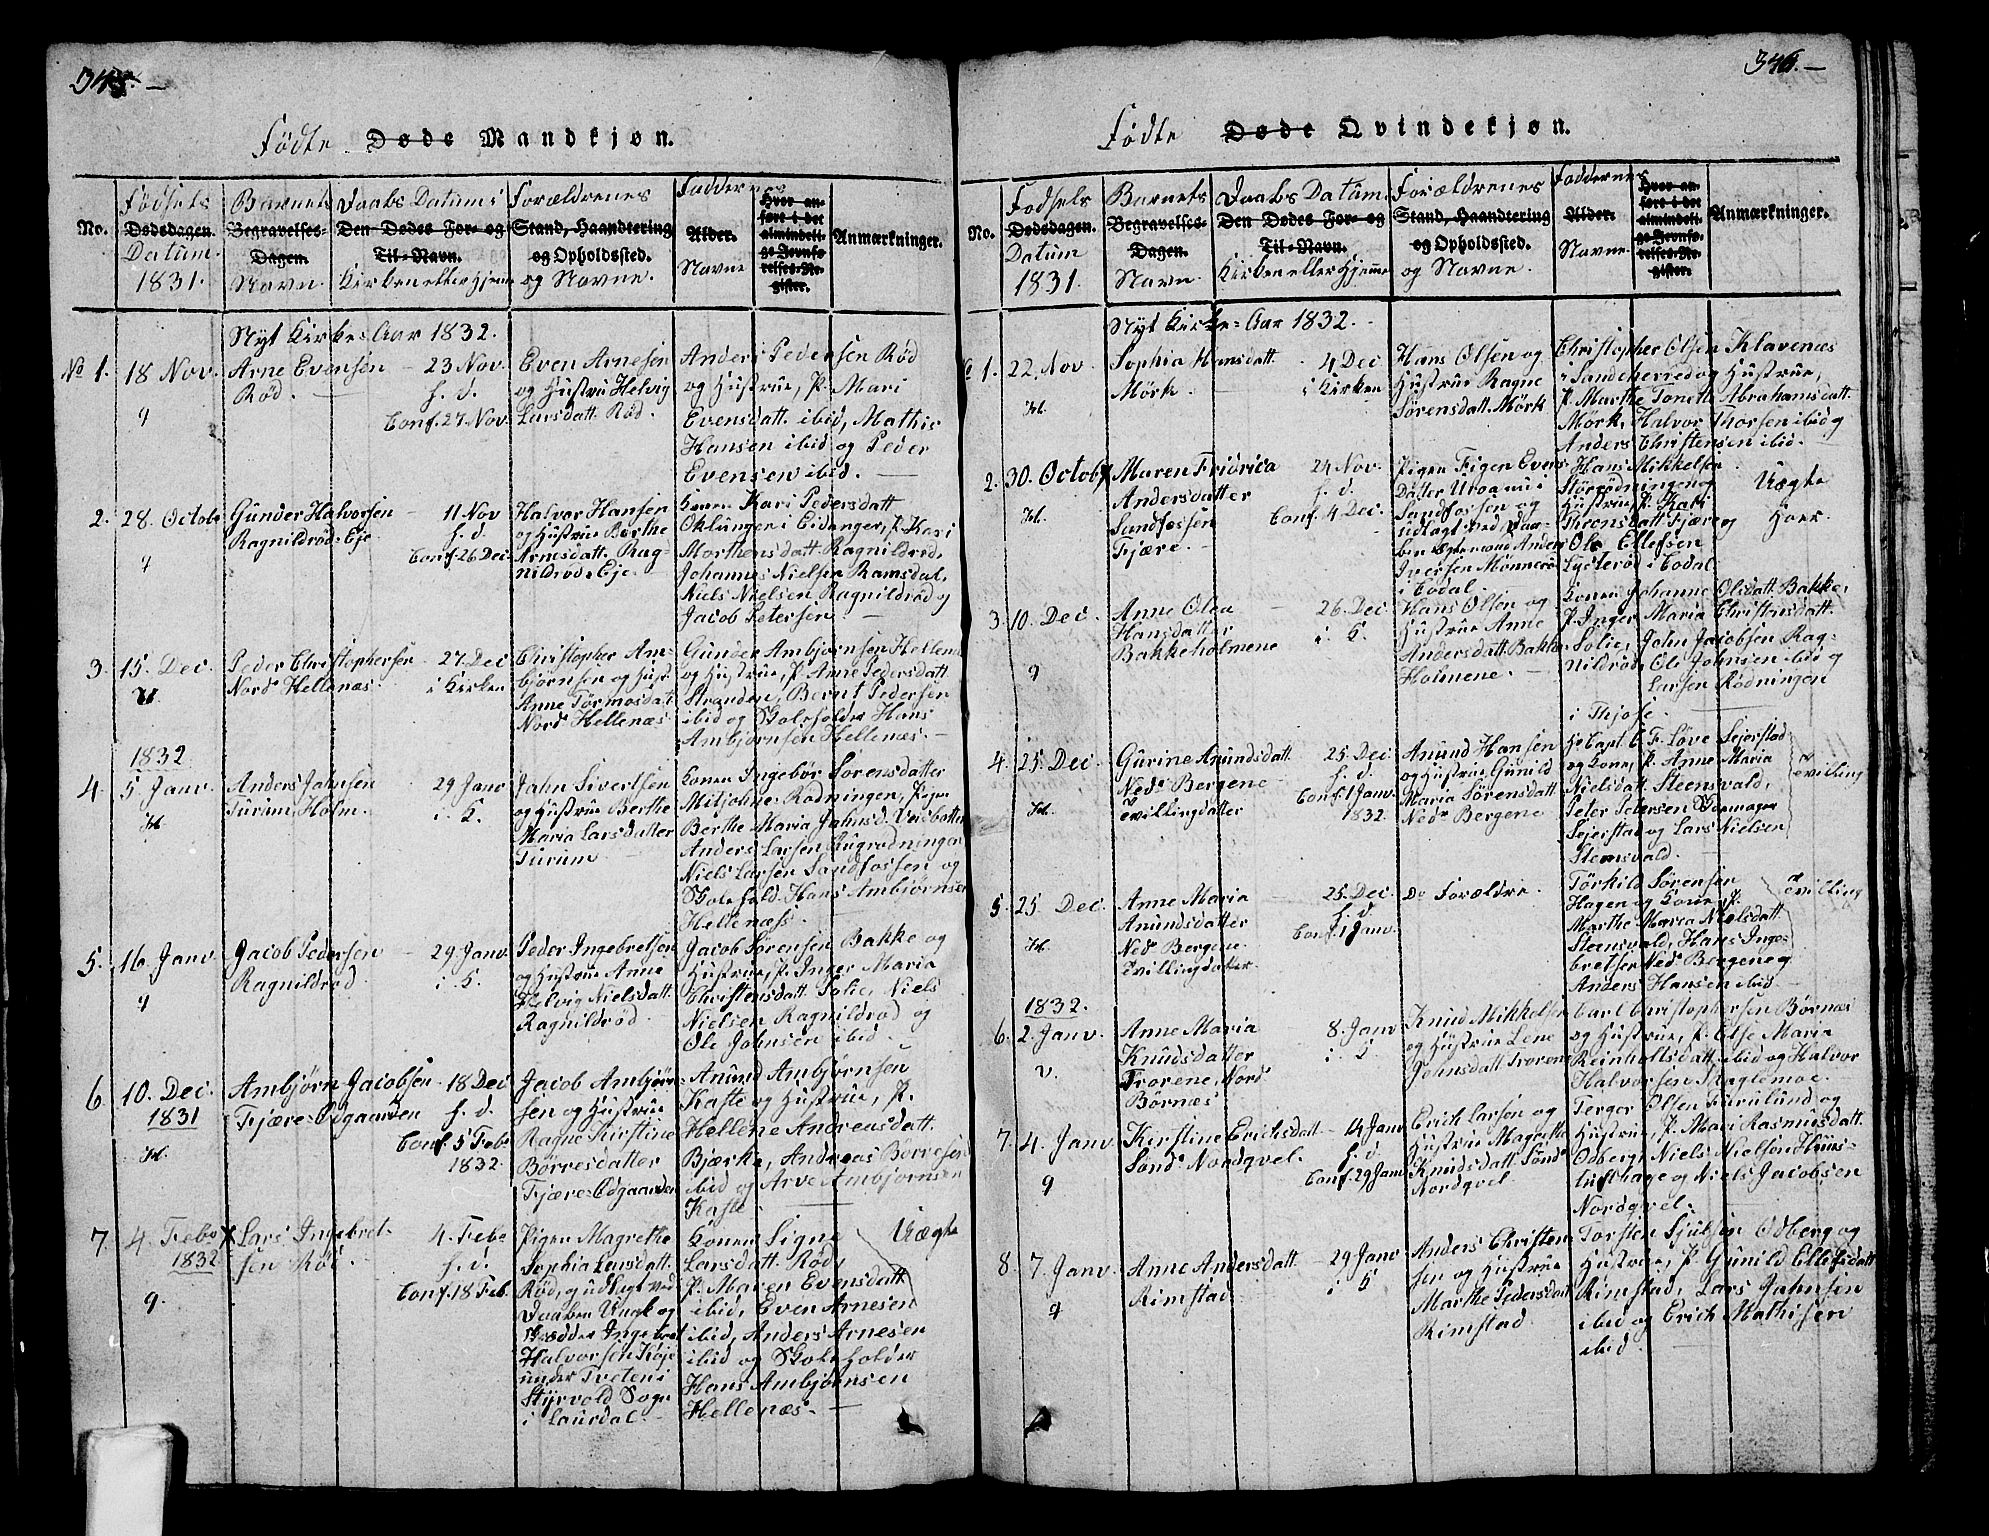 345. —
Født­e Døde Mandkjøn.
No.
Fødsels
Dødsdagen.
Datum
1831.
Barnets
Begravelses-
Dagen.
Navn.
Daabs Datum i
Den Dødes For- og
Til-Navn.
Kirken eller Hjem
Forældrenes
Stand, Haandtering
og Opholdssted.
og Navne.
Faddernes
Alder.
Navne
Hvor an-
ført i det
almindeli-
ge Jevnfø-
relses-Re-
gister.
Anmærkninger.
Nyt Kirke-Aar 1832.
No 1. 18 Nov.
9
Arne Evensen
Rød. —
23 Nov.
h. d.
Conf. 27. Nov.
Even Arnesen
og Hustrue Helvig
Larsdatt. Rød.
Anders Pedersen Rød
og Hustrue, P. Mari
Evensdatt. ibid, Mathis
Hansen ibid og Peder
Evensen ibid. —
2. 28. Octob.
9
Gunder Halvorsen
Ragnildrød-Eje
11 Nov
h. d.
Conf. 26 Dec.
Halvor Hansen
og Hustrue Berthe
Arnesdatt. Rag-
nildrød-Eje
Konen Kari Pedersdatt
Oklungen i Eidanger, P. Kari
Morthensdatt. Ragnildrød,
Johannes Nielsen Ramsdal,
Niels Nielsen Ragnildrød og
Jacob Petersen. —
3. 15. Dec
Peder Christophersen
Nordr Hellenæs.
27. Dec
i Kirken
Christopher Am-
bjørnsen og Hust.
Anne Tormosdat
Nordr Hellenæs
Gunder Ambjørnsen Hellenæs
og Hustrue, P. Anne Pedersdatt
Stranden, Bernt Pedersen
ibid og Skoleholder Hans
Ambjørnsen Hellenæs. —
1832
4. 5. Janv.
H.
Anders Jahnsen
Turum, Holm.
29 Janv
i K.
Jahn Sivertsen
og Hustrue Berthe
Maria Larsdatter
Turum —
Konen Ingebor Sørensdatter
Mitjohne-Rødningen, Pigen
Berthe Maria Jahnsd. Veisbatten
Anders Larsen Augrødningen
Niels Larsen Sandfossen og
Skolehold. Hans Ambjørnsen
Hellenæss. —
5. 16. Janv.
9
Jacob Pedersen
Ragnildrød
29. Janv.
i K.
Peder Ingebretsen
og Hustrue Anne
Helvig Nielsdatt.
Ragnildrød.
Jacob Sørensen Bakke og
Hustrue, P. Inger Maria
Christensdatt. Solie, Niels
Nielsen Ragnildrød og
Ole Johnsen ibid. —
6. 10. Dec.
1831
H.
Ambjørn Jacobsen
Fjære-Ødgaarden
18 Dec
h. d.
Conf. 5 Febr
1832.
Jacob Ambjørn-
sen og Hustrue
Ragne Kirstine
Børresdatter
Fjære-Ødgaarden
Anund Ambjørnsen
Kaste og Hustrue, P.
Hellene Andreasdatt.
Bjærke, Andreas Børresen
ibid og Arve Ambjørnsen
Kaste. —
7. 4. Febr
1832
9.
Lars Ingebret-
sen Rød.
4. Febr
h. d.
Conf. 18 Feb.
Pigen Magrethe
Sophia Larsdatt.
Rød, og udlagt ved
Daaben Ungk og
Halvorsen Køje
under Tveten i
Styrvold Sogn
i Laurdal. —
Konen Signe
Larsdatt. Rød,
P. Maren Evensdatt.
ibid, Even Arnesen
ibid, Anders Arnesen
ibid og Skoleholder
Hans Ambjørnsen
Hellenæs. —
Uægte
346. —
Fødte Døde Qvindekjøn.
No.
Fødsels
Dødsdagen.
Datum
1831.
Barnets
Begravelses-
Dagen.
Navn
Daabs Datum.
Den Dødes For- og
Til-Navn.
Kirken eller Hjemme
Forældrenes
Stand, Haandtering
og Opholdssted.
og Navne.
Faddernes
Alder.
Navne
Hvor an-
ført i det
almindeli-
ge Jevnfø-
relses-Re-
gister.
Anmærkninger.
Nyt Kirke-Aar 1832.
1. 22. Nov
H.
Sophia Hansdatt.
Mørk. —
4 Dec
i Kirken
Hans Olsen og
Hustrue Ragne
Sørensdatt. Mørk
Christopher Olsen Klavenæs
i Sandeherred og Hustrue,
P. Marthe Tonett. Abrahamsdatt.
Mørk, Halvor Thorsen ibid og
Anders Christensen ibid. —
2. 30. Octobr
H.
Maren Fridrica
Andersdatter
Sandfossen
Fjære. —
24 Nov.
h. d.
Conf. 4 Dec.
Pigen Figen Evens-
Datter
Sandfossen og
udlagt ved Daa-
ben Anders
Iversen Mønnerø
i Eodal.
Hans Mikkelsen
Størødningen og
Hustrue, P. Kari
Theonsdatt. Fjære og
Ole Ellefsen
Lysterød i Eodal
Uægte
Hoer.
3. 10. Dec.
9
Anne Olea
Hansdatter
Bakkeholmene
26. Dec
i K.
Hans Olsen og
Hustrue Anne
Andersdatt. Bakke
Holmene. —
Konen Johanne Olsdatt. Bakke,
P. Inger Maria Christensdatt.
Solie, John Jacobsen Rag-
nildrød, Ole Johnsen ibid og
Larsen Rødningen
i Thjose. —
4. 25. Dec.
H.
Gurine Anundsdatt.
Nedr Bergene —
Tvillingdatter
25. Dec
h. d.
Conf. 1 Janv.
1832.
Anund Hansen
og Hustrue Gunild
Maria Sørensdatt
Nedr Bergene
Hr Capt. C. F. Løve Sejerstad
og Kone, P. Anne Maria
Nielsdatt. Steensvald,
Peter Petersen Skomager
Sejerstad og Lars Nielsen
Steensvald. —
Tvilling
5. 25 Dec.
H.
Anne Maria
Anundsdatter
Nedr Bergene.
Tvillingdatter
25. Dec
h. d.
Conf. 1 Janv.
Do Forældre.
Tørkild Sørensen
Hagen og Kone, P.
Marthe Maria Nielsdatt.
Steensvald, Hans Inge-
bretsen Nedr Bergene og
Anders Hansen ibid. —
Tvilling
1832.
6. 2. Janv.
v.
Anne Maria
Knudsdatter
Trorene, Nordr
Børnæs
8. Janv
i K.
Knud Mikkelsen
og Hustrue Lene
Johnsdatt. Trorene
Carl Christophersen Børnæs
og Hustrue, P. Else Maria
Reinholtsdatt. ibid og Halvor
Halvorsen Haglemoe.
7. 4. Janv
9
Kirstine Erichsdatt.
Søndr Nordqvel.
14 Janv
h. d.
Conf. 29 Janv
Erich Larsen og
Hustrue Magrethe
Knudsdatt. Søndr
Nordqvel
Terger Olsen Furulund og
Hustrue, P. Mari Rasmusdatt.
Odberg, Niels Nielsen Huus-
lusthage og Niels Jacobsen
Nordqvel.
8. 7. Janv.
9
Anne Andersdatt.
Rimstad.
29 Janv
i K
Anders Christen-
sen og Hustrue
Marthe Pedersdatt
Rimstad
Torsten Sjulsen Odberg og
Hustrue, P. Gunild Ellefsdatt
Rimstad, Lars Jahnsen
ibid og Erich Mathisen
ibid.